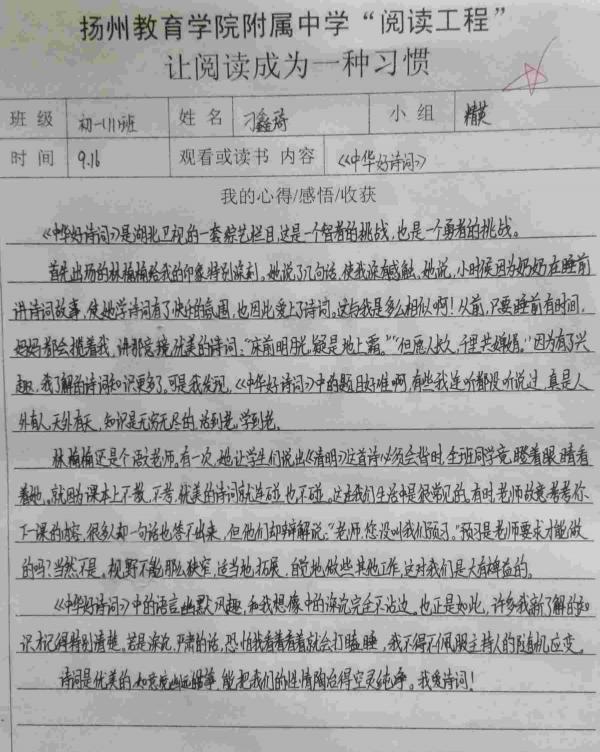 扬州教育学院附属中学“阅读工程”
让阅读成为一种习惯
班 级 初一(11)班 姓 名 刁鑫琦 小 组 精英
时 间 9.16 观看或读书 内容 《中华好诗词》
我的心得/感悟/收获
《中华好诗词》是湖北卫视的一套综艺栏目,这是一个智者的挑战,也是一个勇者的挑战。
首先出场的林楠楠给我的印象特别深刻。她说了几句话,使我深有感触。她说,小时候因为奶奶在睡前
讲诗词故事,使她学诗词有了快乐的氛围,也因此爱上了诗词。这与我是多么相似啊!从前,只要睡前有时间,
妈妈都会搅着我,讲那意境优美的诗词:“床前明月光,疑是地上霜。”“但愿人长久,千里共婵娟。”因为有了兴
趣,我了解的诗词知识更多了。可是我发现,《中华好诗词》中的题目好难啊,有些我连听都没听说过,真是人
外有人,天外有天,知识是无穷无尽的,活到老,学到老。
林楠楠还是个语文老师。有一次,她让学生们说出《清明》这首诗必须会背时,全班同学竟瞪着眼睛看
着她。就因为课本上不教,不考,优美的诗词就连碰也不碰。这在我们生活中是很常见的。有时,老师故意考考你
下一课的内容,很多人却一句话也答不出来,但他们却辩解说:“老师,您没叫我们预习。”预习是老师要求才能做
的吗?当然不是。视野不能那么狭窄,适当地拓展,自觉地做些其他工作,这对我们是大有裨益的。
《中华好诗词》中的语言幽默风趣,和我想像中的深沉完全不沾边。也正是如此,许多我新了解的知
识才记得特别清楚。若是深沉,严肃的话,恐怕我看着看着就会打瞌睡。我不得不佩服主持人的随机应变。
诗词是优美的,如意境幽远的筝,能把我们的性情陶冶得空灵纯净。我爱诗词!